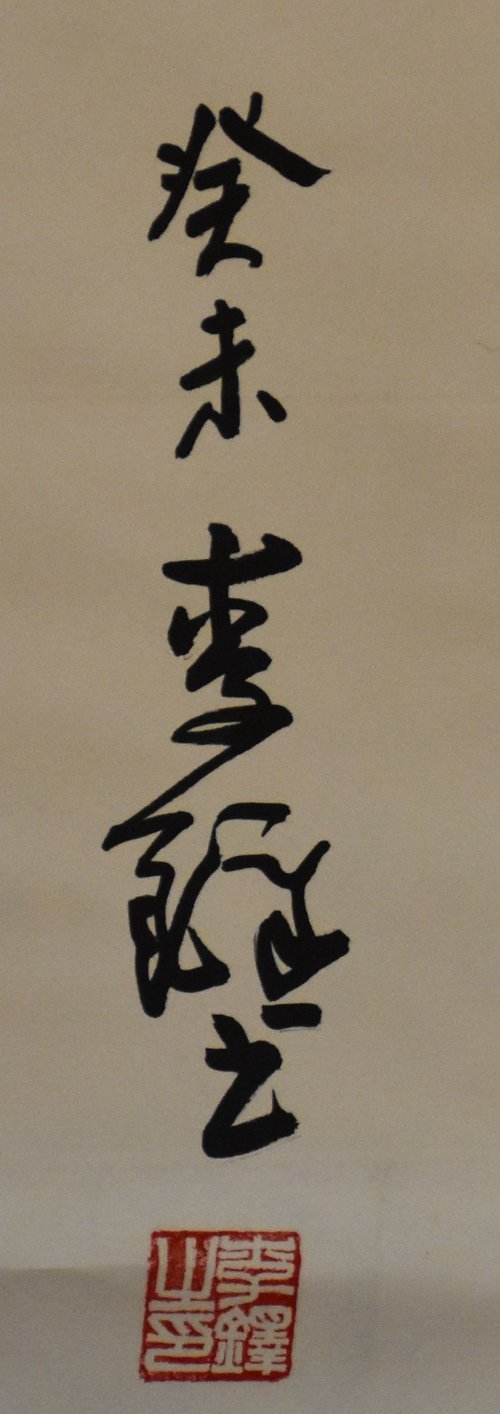 癸未李鐸书
李鐸之印